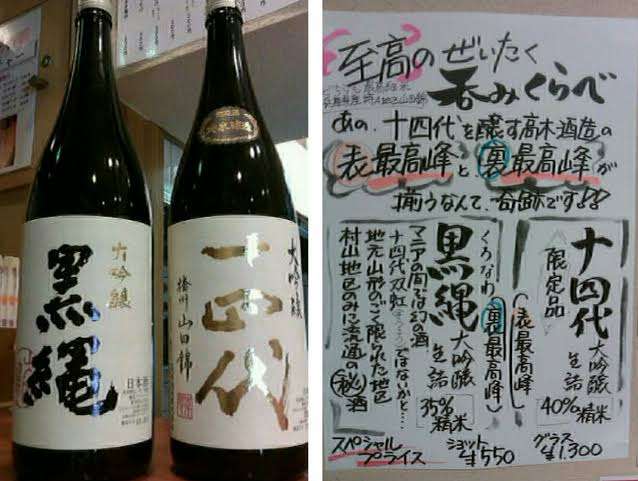 大吟醸
黒縄
日本酒
大吟醸
十四代
播州 山田錦
至高のぜいたく
呑みくらべ
兵庫県産特A地区山田錦
あの、十四代を醸す高木酒造の
表最高峰と裏最高峰が
揃うなんて、奇跡です!?
十四代 大吟醸 生詰
限定品
(表最高峰)
40%精米
グラス
¥1,300
くろなわ
黒縄 大吟醸 生詰
(裏最高峰)
マニアの間では幻の酒
十四代双虹ではないかと…
地元山形のごく限られた地区
村山地区のみに流通の㊙酒
35%精米
スペシャル
プライス
ショット
¥550